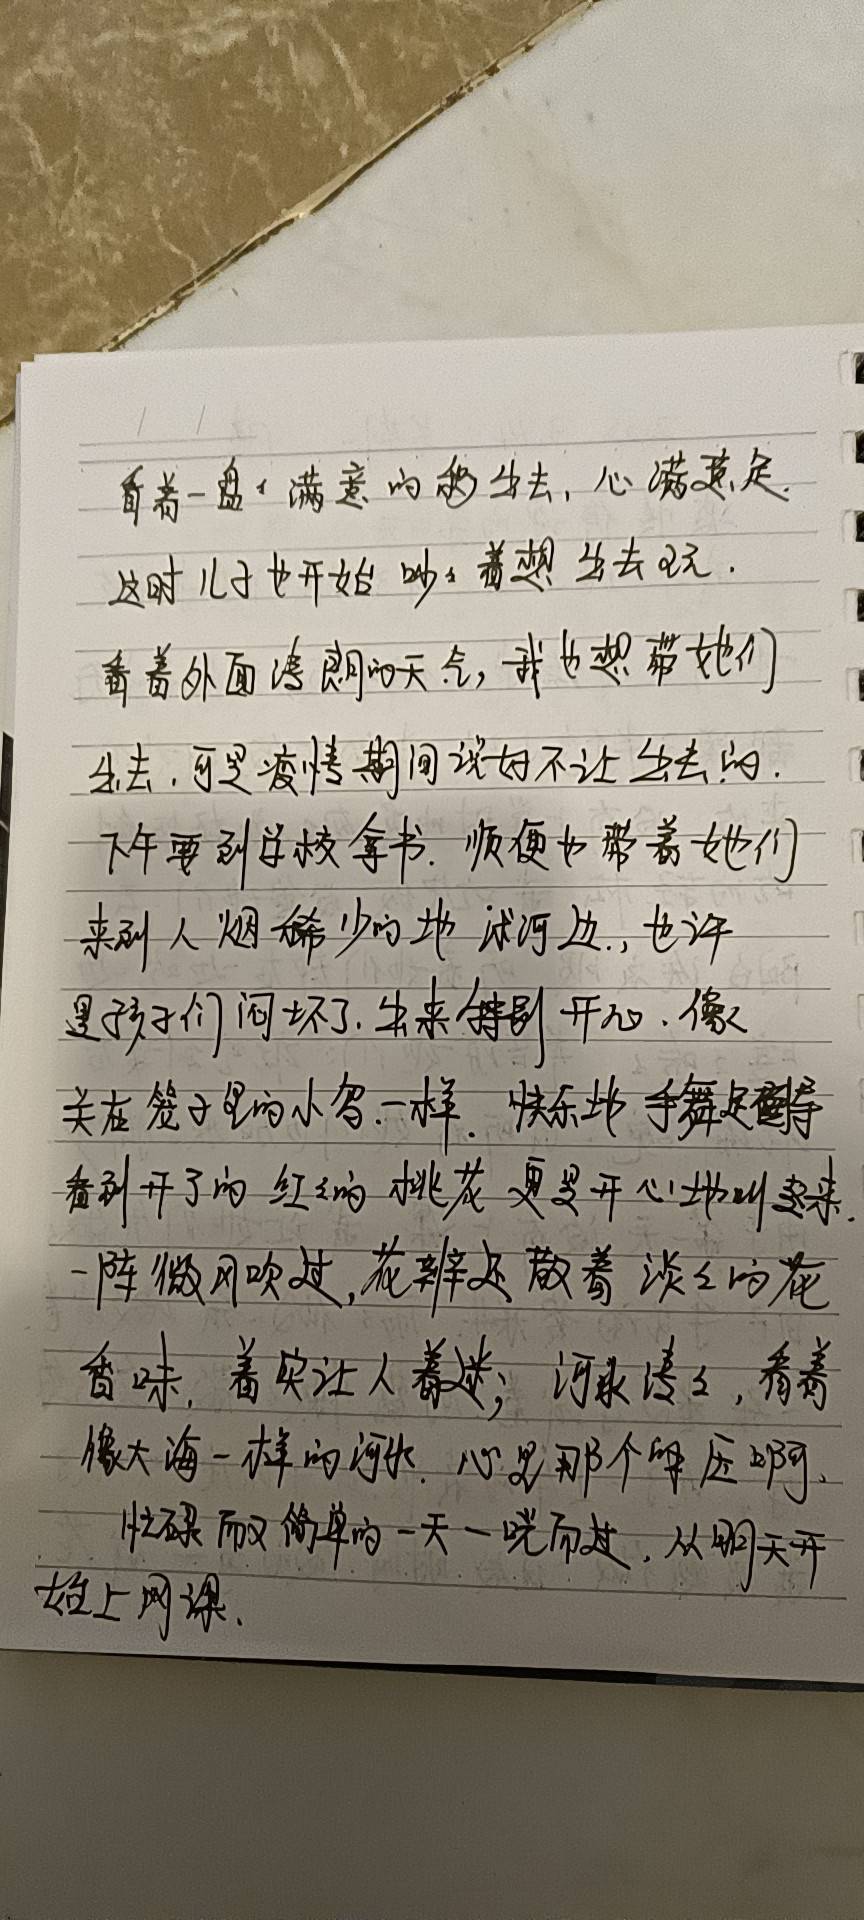 看着一盘々满意的秒出去，心满意足.
这时儿子也开始吵々着想出去玩.
看着外面清朗的天气，我也想带她们
出去，可是疫情期间说好不让出去的.
下午要到学校拿书.顺便也带着她们
来到人烟稀少的地 沭河边.，也许
是孩子们闷坏了.出来特别开心.像
关在笼子里的小鸟.一样.快乐地手舞足蹈
看到开了的红々的桃花更是开心地叫起来.
一阵微风吹过，花辨还散着淡々的花
香味，着实让人着迷；河水清々，看着
像大海一样的河水.心是那个解压啊、
忙碌而又简单的一天一晃而过，从明天开
始上网课.